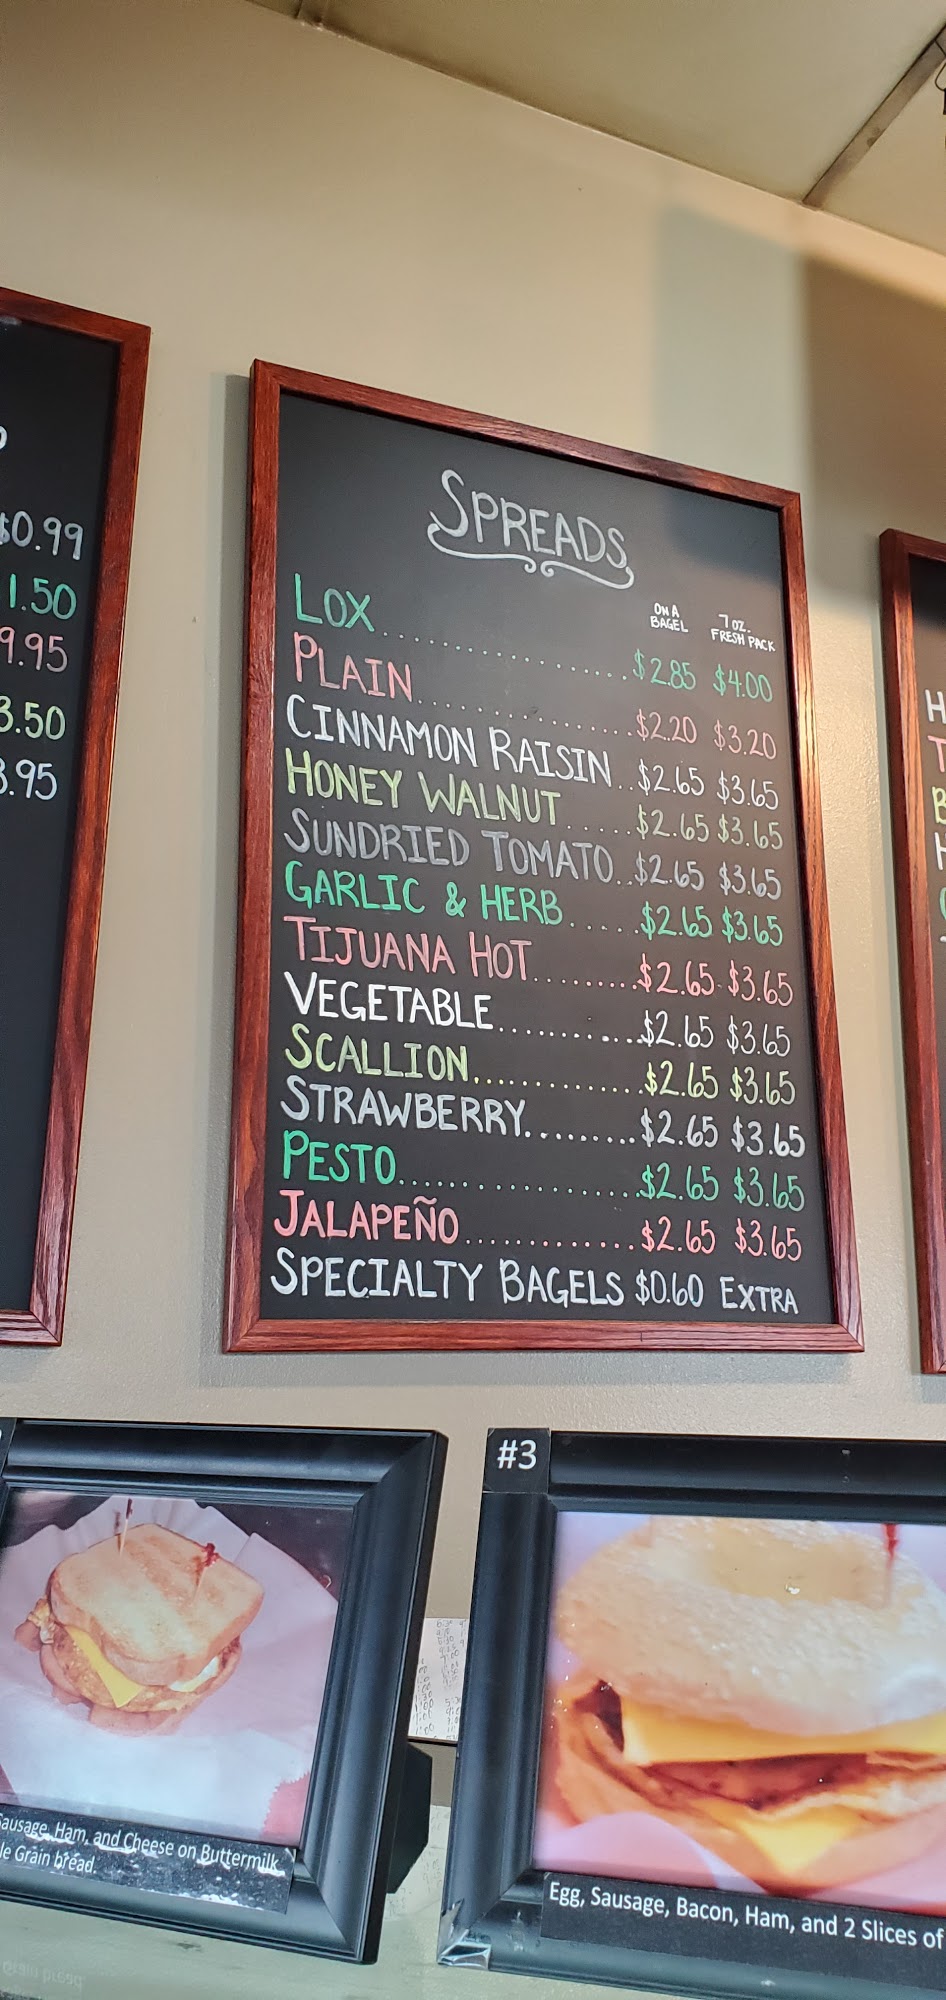 $0.99
1.50
9.95
3.50
3.95
SPREADS
ON A BAGEL
7 OZ. FRESH PACK
LOX $2.85 $4.00
PLAIN $2.20 $3.20
CINNAMON RAISIN $2.65 $3.65
HONEY WALNUT $2.65 $3.65
SUNDRIED TOMATO $2.65 $3.65
GARLIC & HERB $2.65 $3.65
TIJUANA HOT $2.65 $3.65
VEGETABLE $2.65 $3.65
SCALLION $2.65 $3.65
STRAWBERRY $2.65 $3.65
PESTO $2.65 $3.65
JALAPEÑO $2.65 $3.65
SPECIALTY BAGELS $0.60 EXTRA
Sausage, Ham, and Cheese on Buttermilk
Grain bread.
#3
Egg, Sausage, Bacon, Ham, and 2 Slices of